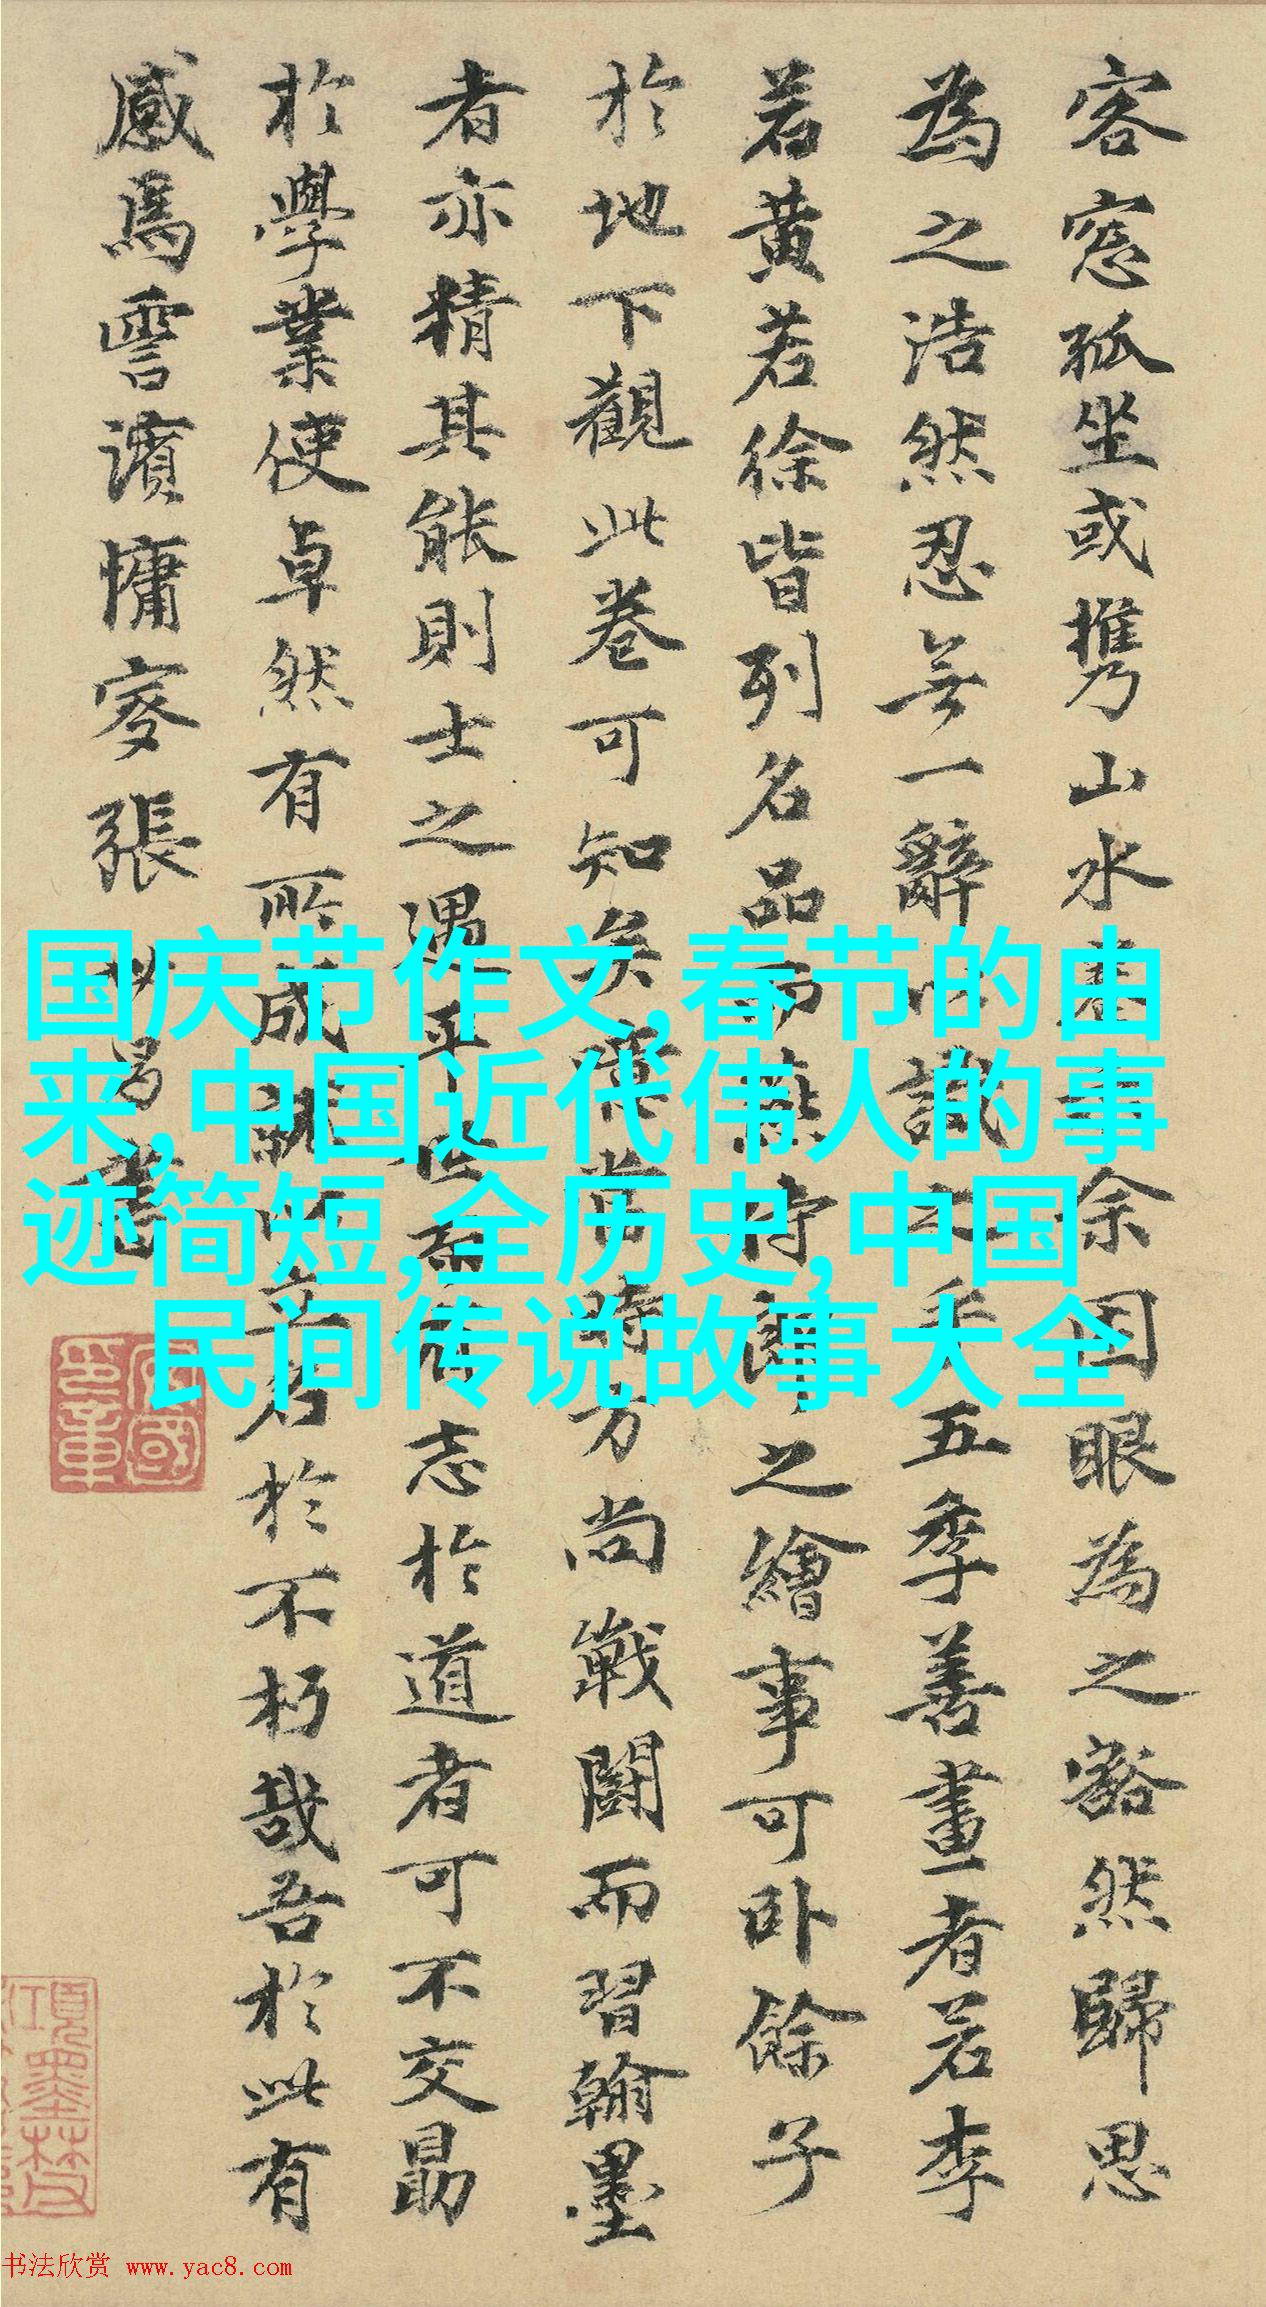 客窓孤坐或携山水卷
余因眼為之豁然歸思
為之浩然忍無一辭以識
五季善畫者若李
若黄若徐皆列名品而燕
侍郎之繪事可卧餘子
於地下觀此卷可知矣
當時方尚戰鬪而習翰墨
者亦精其能則士之遇平世而
志於道者可不交勗
於學業使卓然有所成就以立
名於不朽哉吾於此有
感焉
張
書
国庆节作文,春节的由
来,中国近代伟人的事
迹简短,全历史,中国
民间传说故事大全
书法欣赏 www.yac8.com